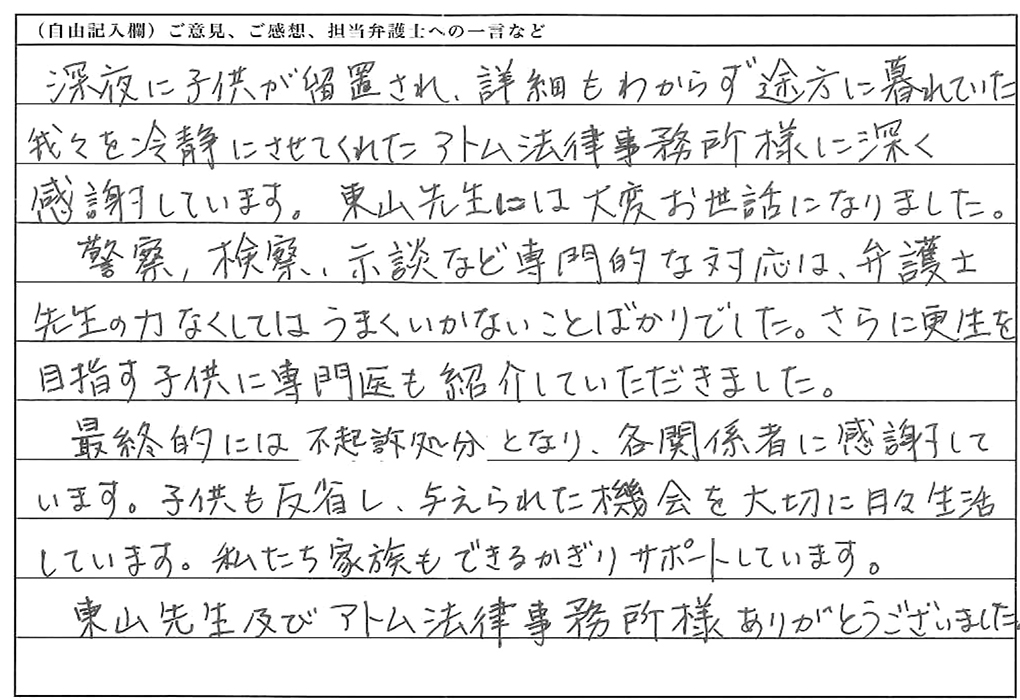 （自由記入欄）ご意見、ご感想、担当弁護士への一言など
深夜に子供が留置され、詳細もわからず途方に暮れていた
我々を冷静にさせてくれたアトム法律事務所様に深く
感謝しています。東山先生には大変お世話になりました。
警察、検察、示談など専門的な対応は、弁護士
先生の力なくしてはうまくいかないことばかりでした。さらに更生を
目指す子供に専門医も紹介していただきました。
最終的には不起訴処分となり、各関係者に感謝して
います。子供も反省し、与えられた機会を大切に日々生活
しています。私たち家族もできるかぎりサポートしています。
東山先生及びアトム法律事務所様ありがとうございました。